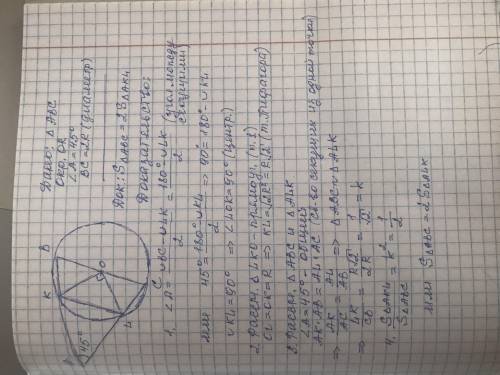 Дано: △ABC
Окр, O,R
∠A=45°
BC=2R (диаметр)
Док: S△ABC=2S△AKL
Доказательство:
1. ∠A = (∪BC-∪LK)/2 = (180°-∪LK)/2 (угол между секущими)
или 45° = (180°-∪KL)/2 ⇒ 90°=180°-∪KL
∪KL=90° ⇒ ∠LOK=90° (центр.)
2. Рассм. △LKO - прямоуг. (п.1)
OL=OK=R ⇒ KL=√2R²=R√2 (т. Пифагора)
3. Рассм. △ABC и △ALK
∠A=45° - общий
AK·AB=AL·AC (св-во секущих из одной точки)
⇒ AK/AC = AL/AB ⇒ △ABC∼△ALK
⇒ LK/CB = R√2/2R = 1/√2 = k
4. S△AKL/S△ABC = k² = 1/2
или S△ABC=2S△ALK
B
K
O
C
L
45°